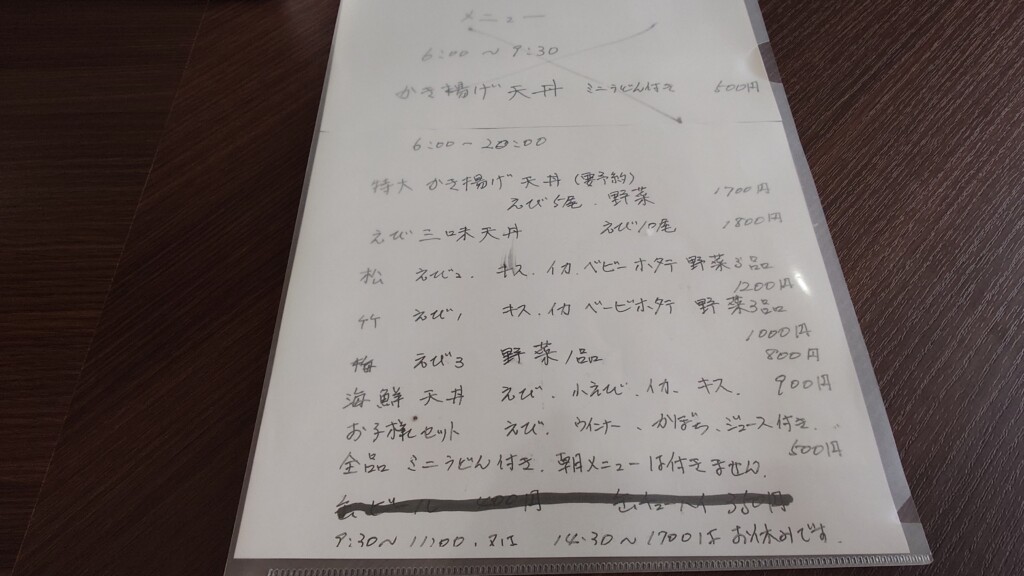 メニュー
6:00～9:30
かき揚げ天丼 ミニうどん付き 500円
6:00～20:00
特大 かき揚げ天丼(要予約)
えび5尾、野菜 1700円
えび三口味天丼 えび10尾 1800円
松 えび2、キス、イカ、ベビーホタテ 野菜3品
1200円
竹 えび1 キス、イカ ベービホタテ 野菜3品
1000円
梅 えび3 野菜1品 800円
海鮮天丼 えび、小えび、イカ、キス、 900円
お子様セット えび、ウインナー、かぼちゃ、ジュース付き、
500円
全品 ミニうどん付き、朝メニューは付きません、
9:30～11:00、又は 14:30～1700は お休みです。